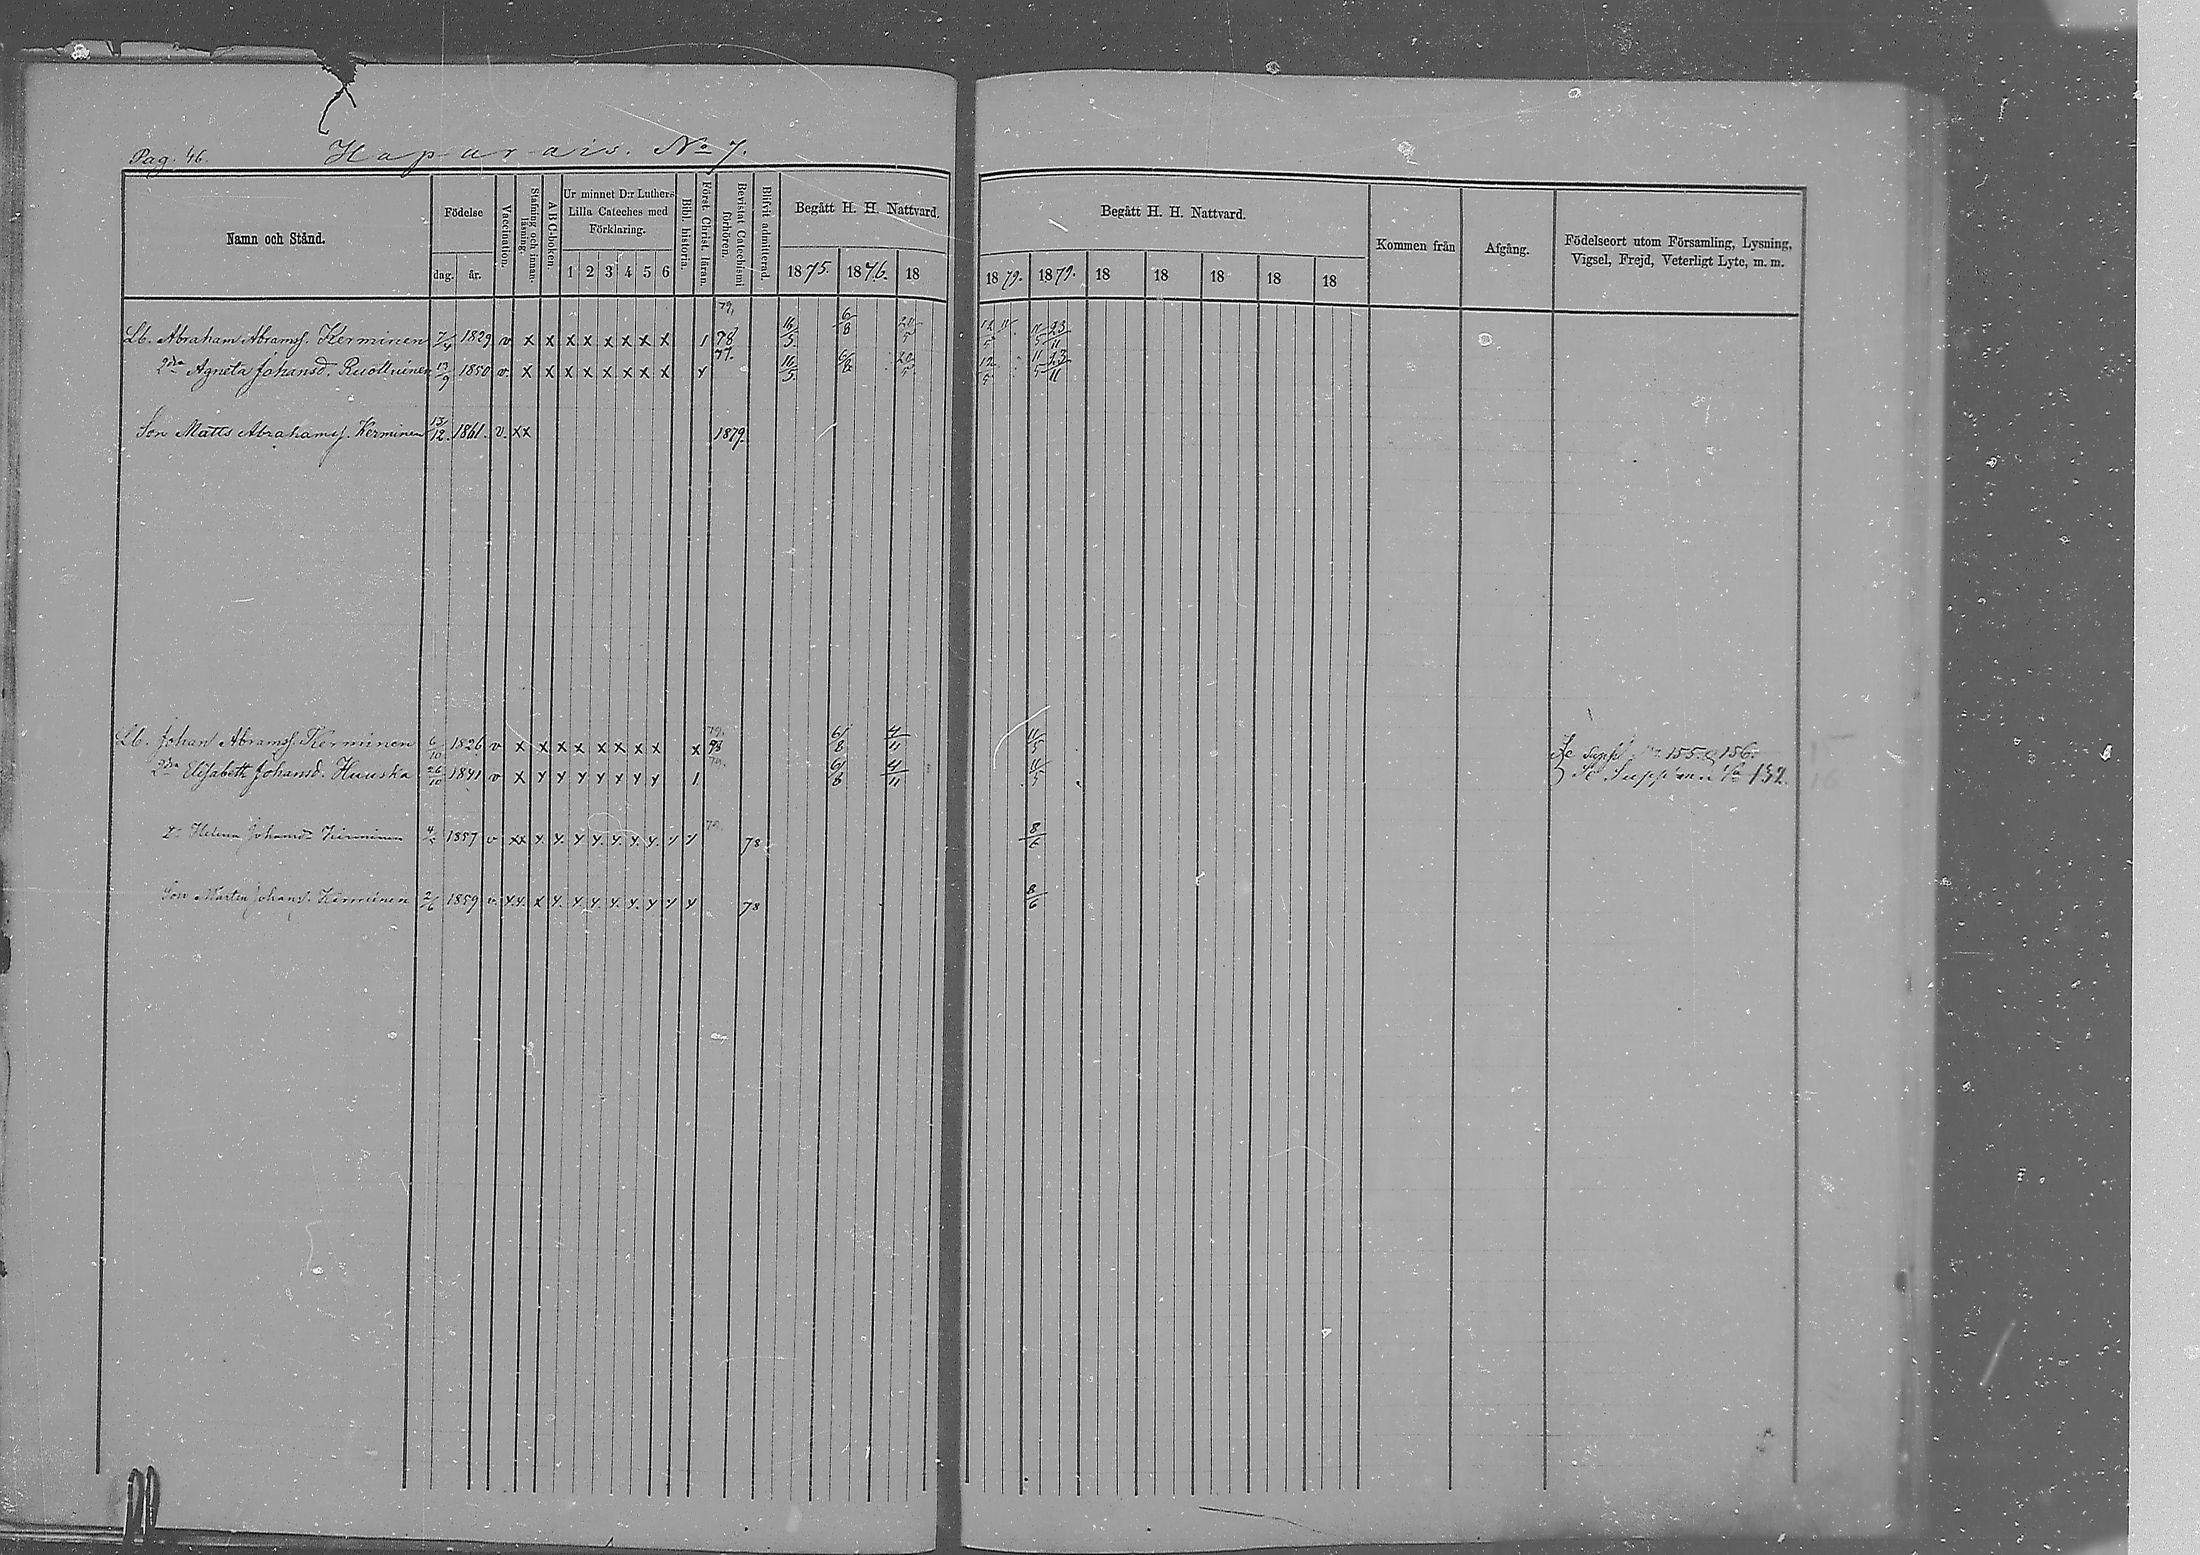 Pag. 46. Haparais. No 7.
Namn och Stånd. Födelse dag. år. Vaccination. Stafning och innan-läsning. A B C-boken. Ur minnet D:r Luthers Lilla Cateches med Förklaring. 1 2 3 4 5 6 Bibl. historia. Först. Christ. läran. Bevistat Catechismi förhören. Blifvit admitterad. Begått H. H. Nattvard. 1875. 1876. 18
Begått H. H. Nattvard. 1879. 1879. 18 18 18 18 18 Kommen från Afgång. Födelseort utom Församling, Lysning, Vigsel, Frejd, Veterligt Lyte, m. m.
79.
Lb. Abraham Abramss. Kerminen 1829 v x x x x x x x x 1 78 16/5 6/8 20/5 12/5 11/5 23/11
77.
2dra Agneta Johansd. Ruottinen 1850 v. x x x x x x x x 16/5 6/8 20/5 12/5 11/5 23/11
Son Matts Abrahamss. Kerminen 13/12. 1861. v. xx 1879.
Lb. Johan Abramss. Kerminen 6/10 1826 v x x x x x x x x x 79. 78 6/8 4/11 11/5 Se Suppl. 155 o 156.
2dra Elisabeth Johansd. Huuska 26/10 1841 v x x x x x x x x 1 79. 6/8 4/11 11/5 132.
Helena Johansd. Kerminen 1857 v xx 78 8/6
Son Mårten Johanss. Kerminen 2/6 1859 v. 78 8/6